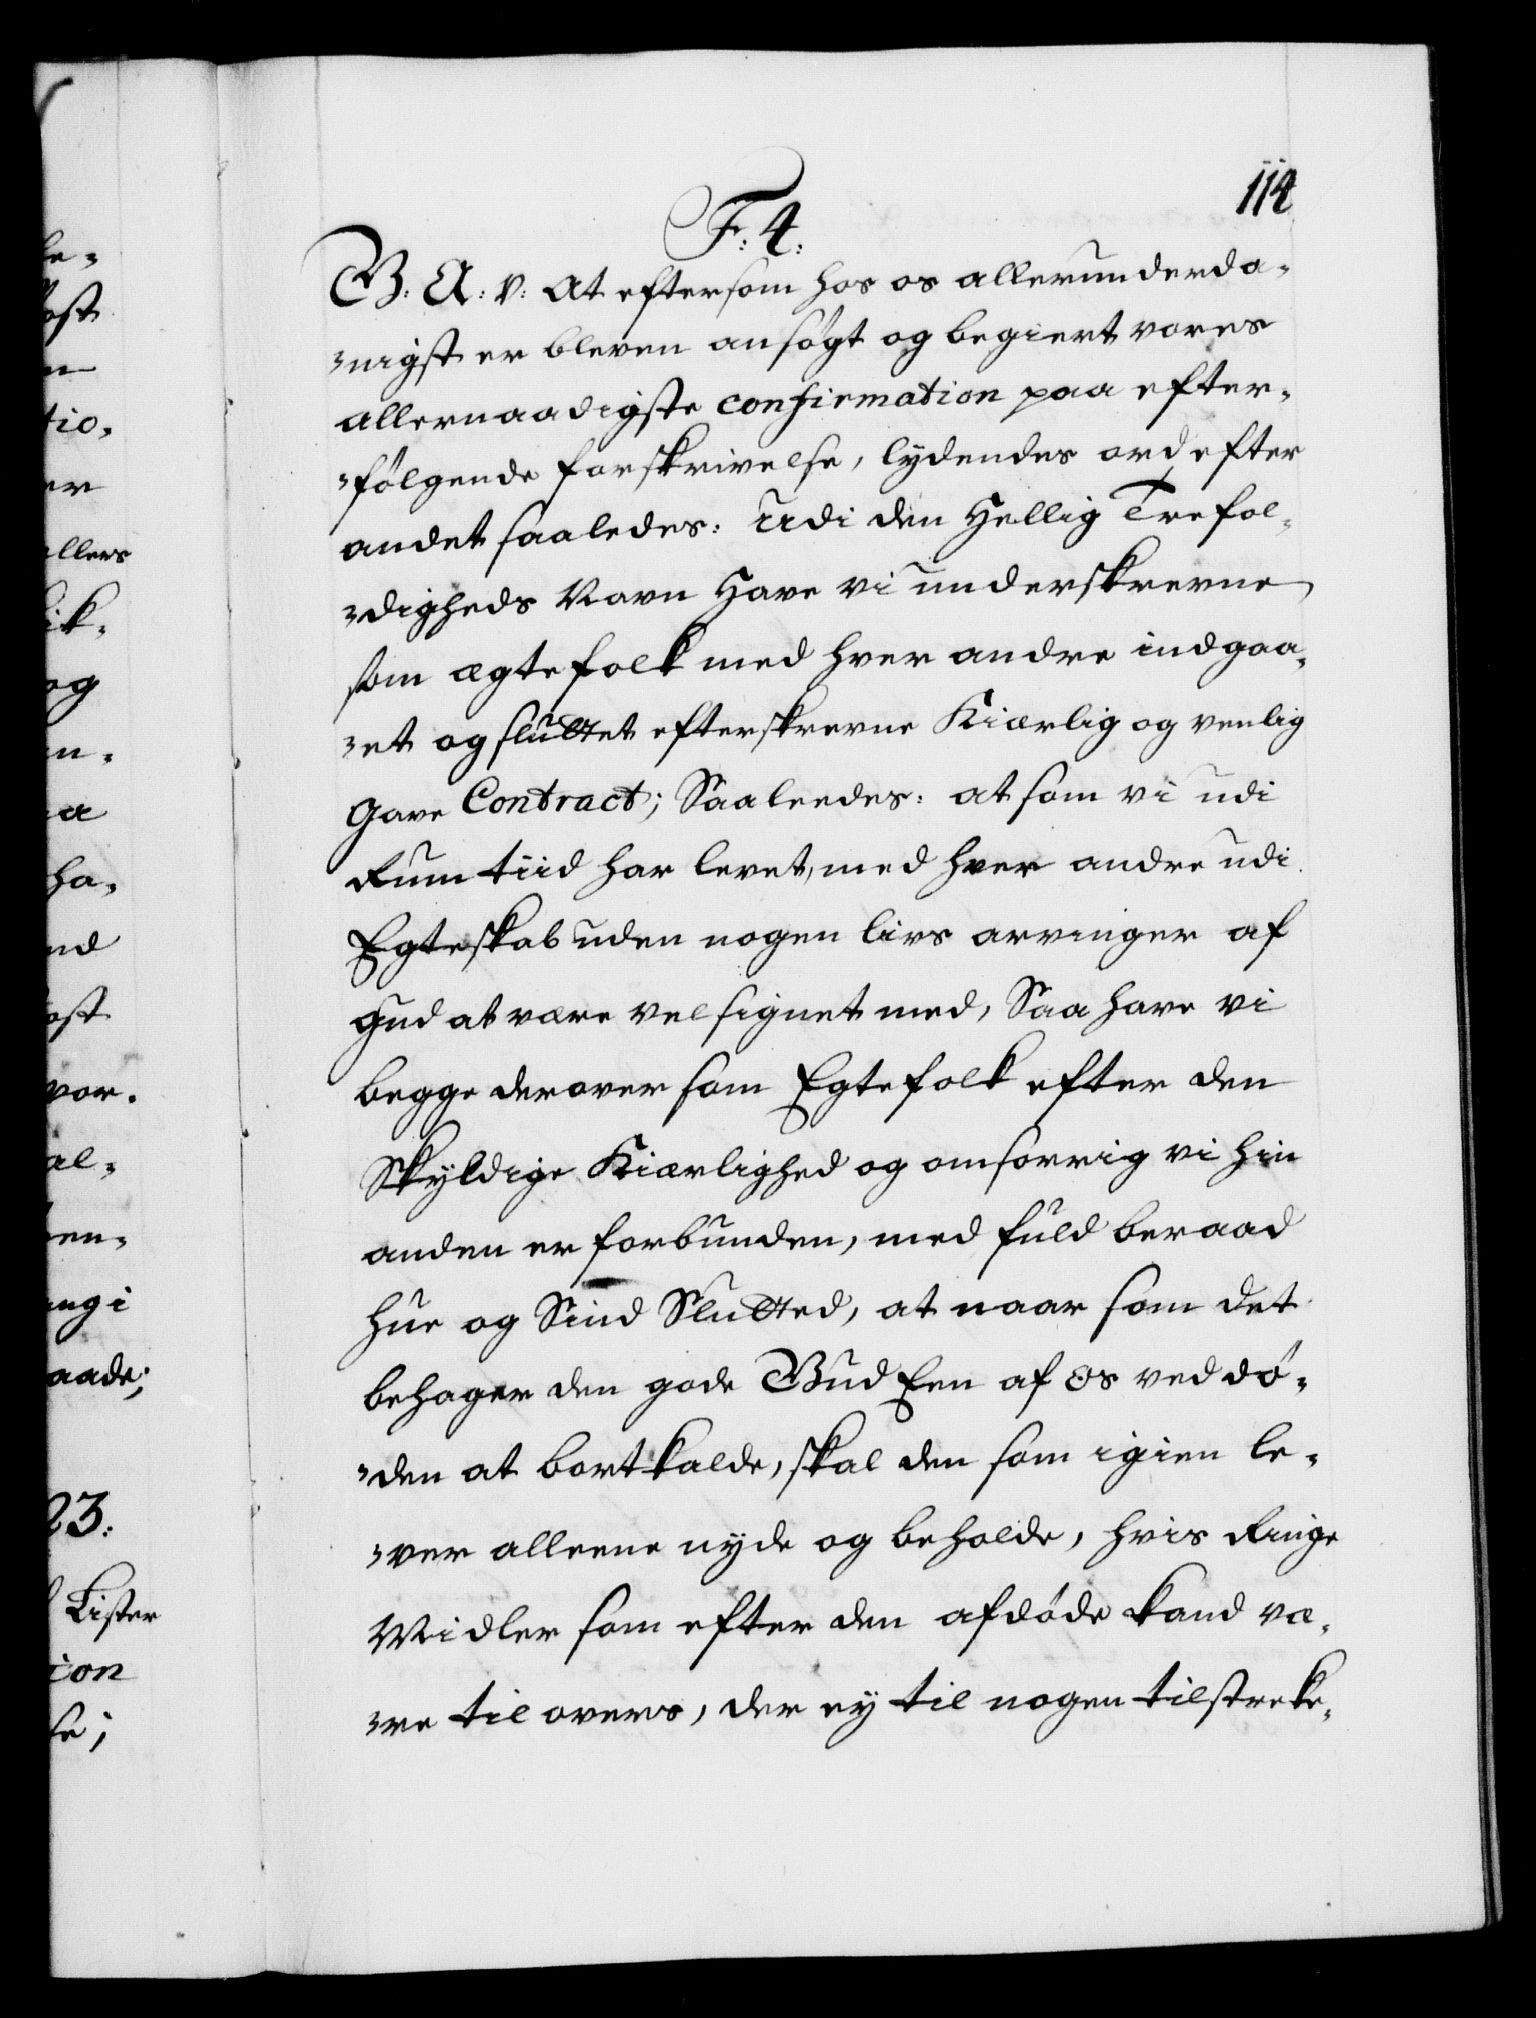 114
F: 4:
G: A: V: At eftersom hos os allerunderda-
-nigst er bleven ansøgt og begiert vores
allernaadigste confirmation paa efter-
-følgende forskrivelse, lydendes ord efter
andet saaledes: Udi den Hellig Trefol-
-digheds Navn Have vi underskrevne
som ægtefolk med hver andre indgaa-
-et og sluttet efterskrevne Kiærlig og venlig
Gave Contract; Saaleedes: at som vi udi
Rum tiid har levet, med hver andre udi
Egteskab uden nogen livs arvinger af
Gud at være velsignet med, Saa have vi
begge derover som Egtefolk efter den
Skyldige Kiærlighed og omsorrig vi hin
anden er forbunden, med fuld beraad
hue og Sind Slutted, at naar som det
behager den gode Gud Een af os ved dø-
-den at bortkalde, skal den som igien le-
-ver alleene nyde og beholde, hvis Ringe
Midler som efter den afdøde kand væ-
-re til overs, der ey til nogen tilstreke-
le-
ost
n
tio-
er
llers
ik-
og
en-
a
ha-
nd
ost
vor-
al-
en-
ng i
aade;
23:
Lister
ion
se;